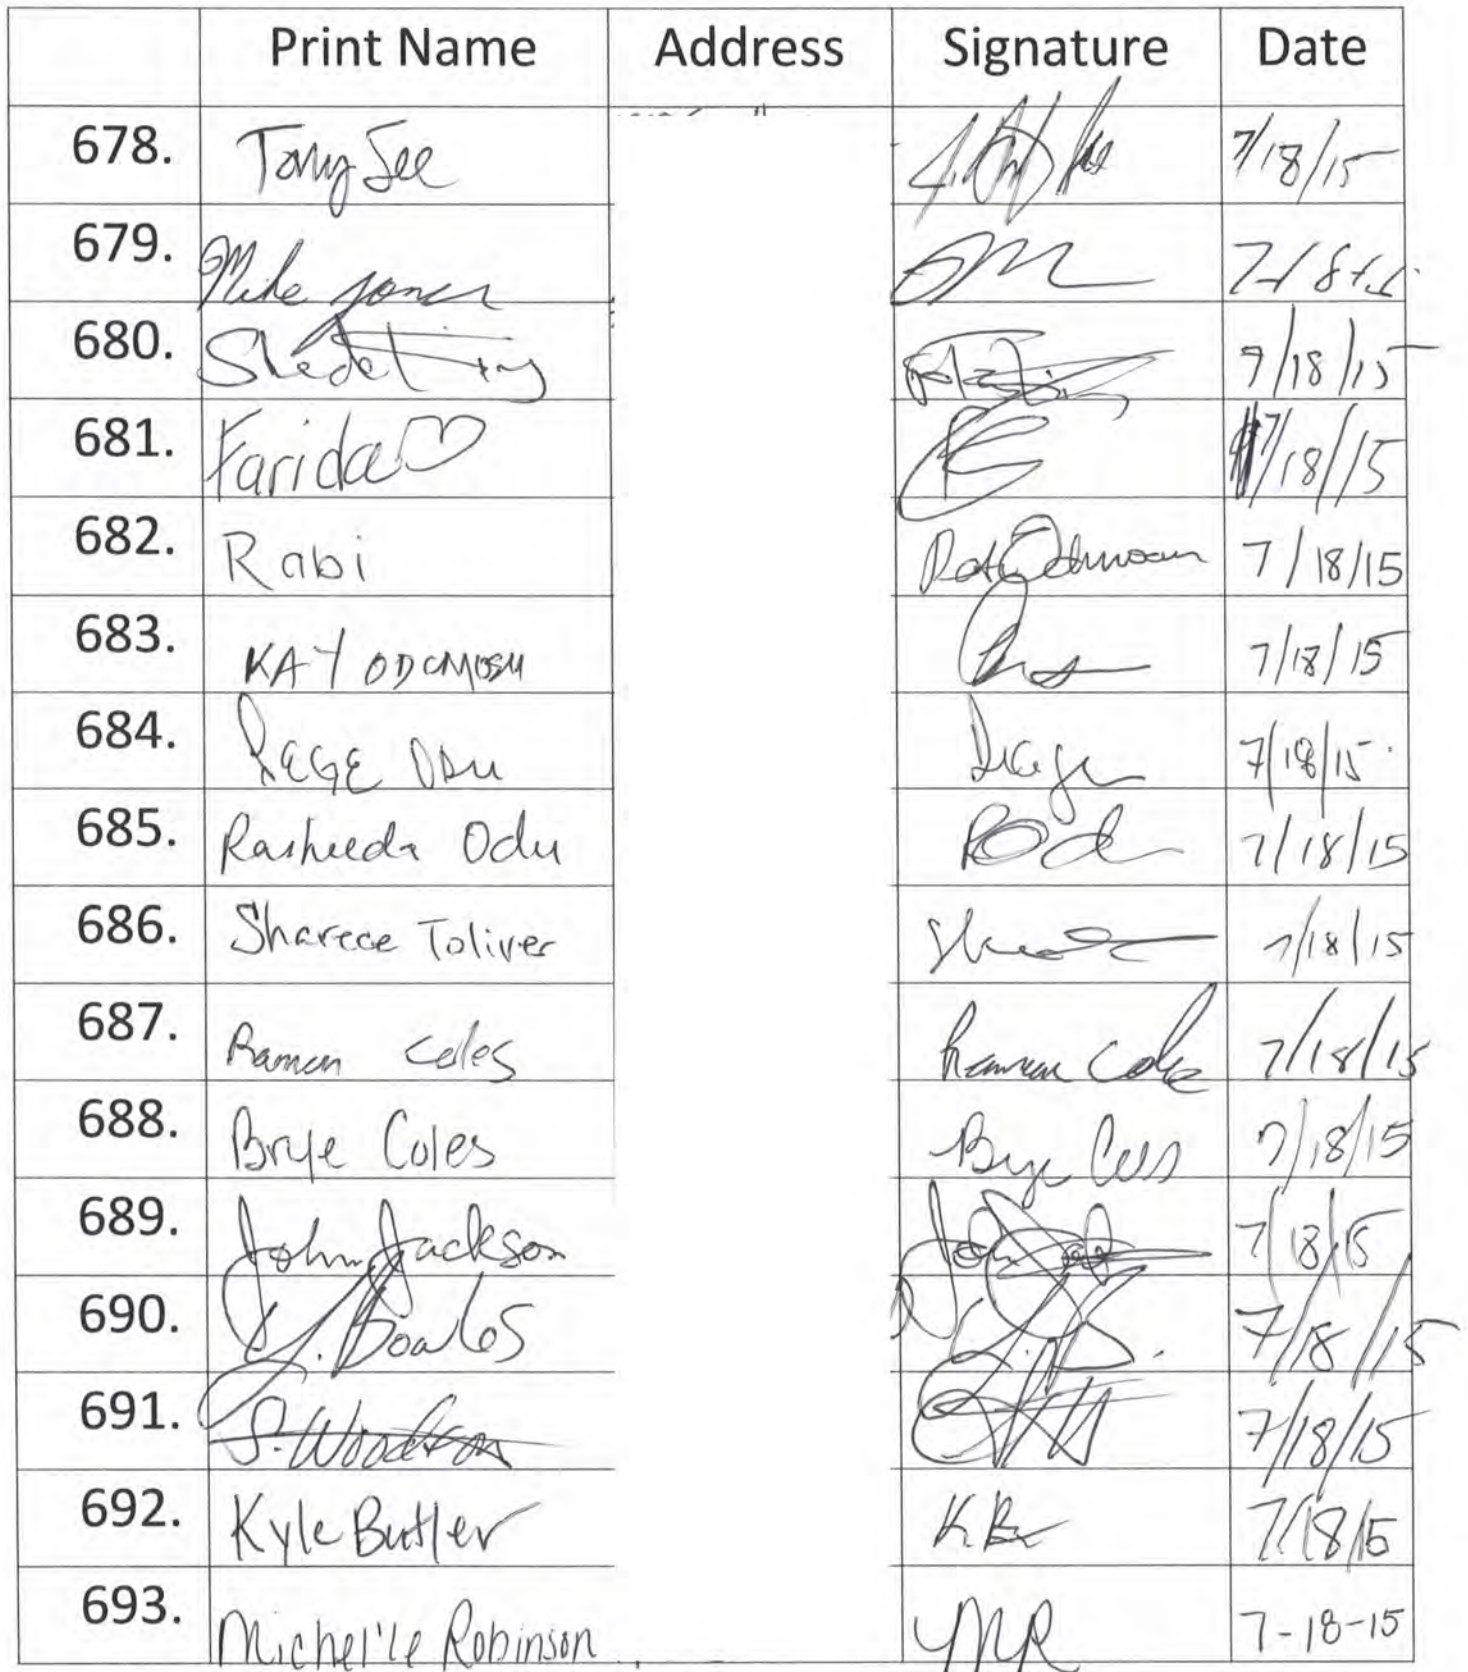 Print Name Address Signature Date
678. Tony See 7/18/15
679. Mike Jones
680. 7/18/15
681. Farida♡ 7/18/15
682. Rabi 7/18/15
683. KAY 7/18/15
684. REGE ODU 7/18/15
685. Rasheeda Odu 7/18/15
686. Sharece Toliver 7/18/15
687. Raman Coles Raman Cole 7/18/15
688. Brye Coles Brye Coles 7/18/15
689. John Jackson John 7/18/15
690. J. Bowles 7/18/15
691. S. Woodson 7/18/15
692. Kyle Butler K. B 7/18/15
693. Michelle Robinson MR 7-18-15